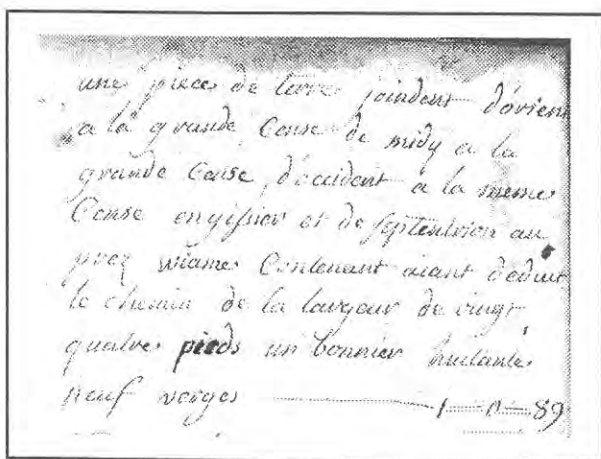 une piece de terre joindent d'orient
a la grande Cense de midy a la
grande Cense d'occident a la meme
Cense et de septentrion au
prez wiame Contenant aiant deduit
le chemin de la largeur de vingt
quatre pieds un bonnier huitante
neuf verges 1-0-89